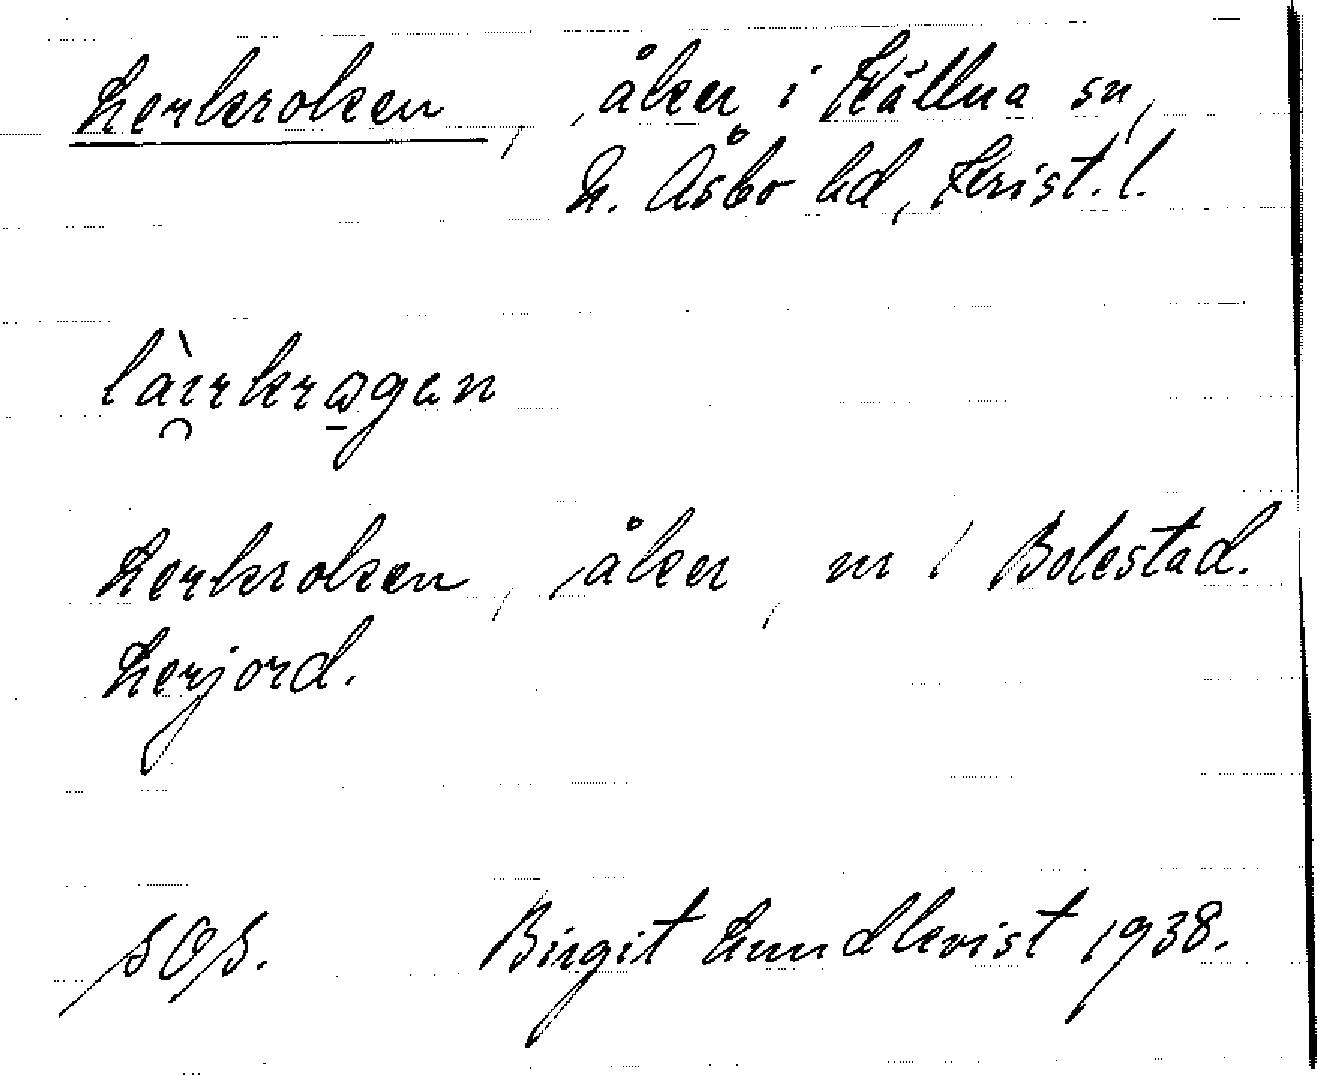 Lerkroken, åker i Källna sn,
N. Åsbo hd, Krist. l.
làırkrɷgan
Lerkroken, åker, nr 1 Bolestad.
Lerjord.
SOS. Birgit Lundkvist 1938.